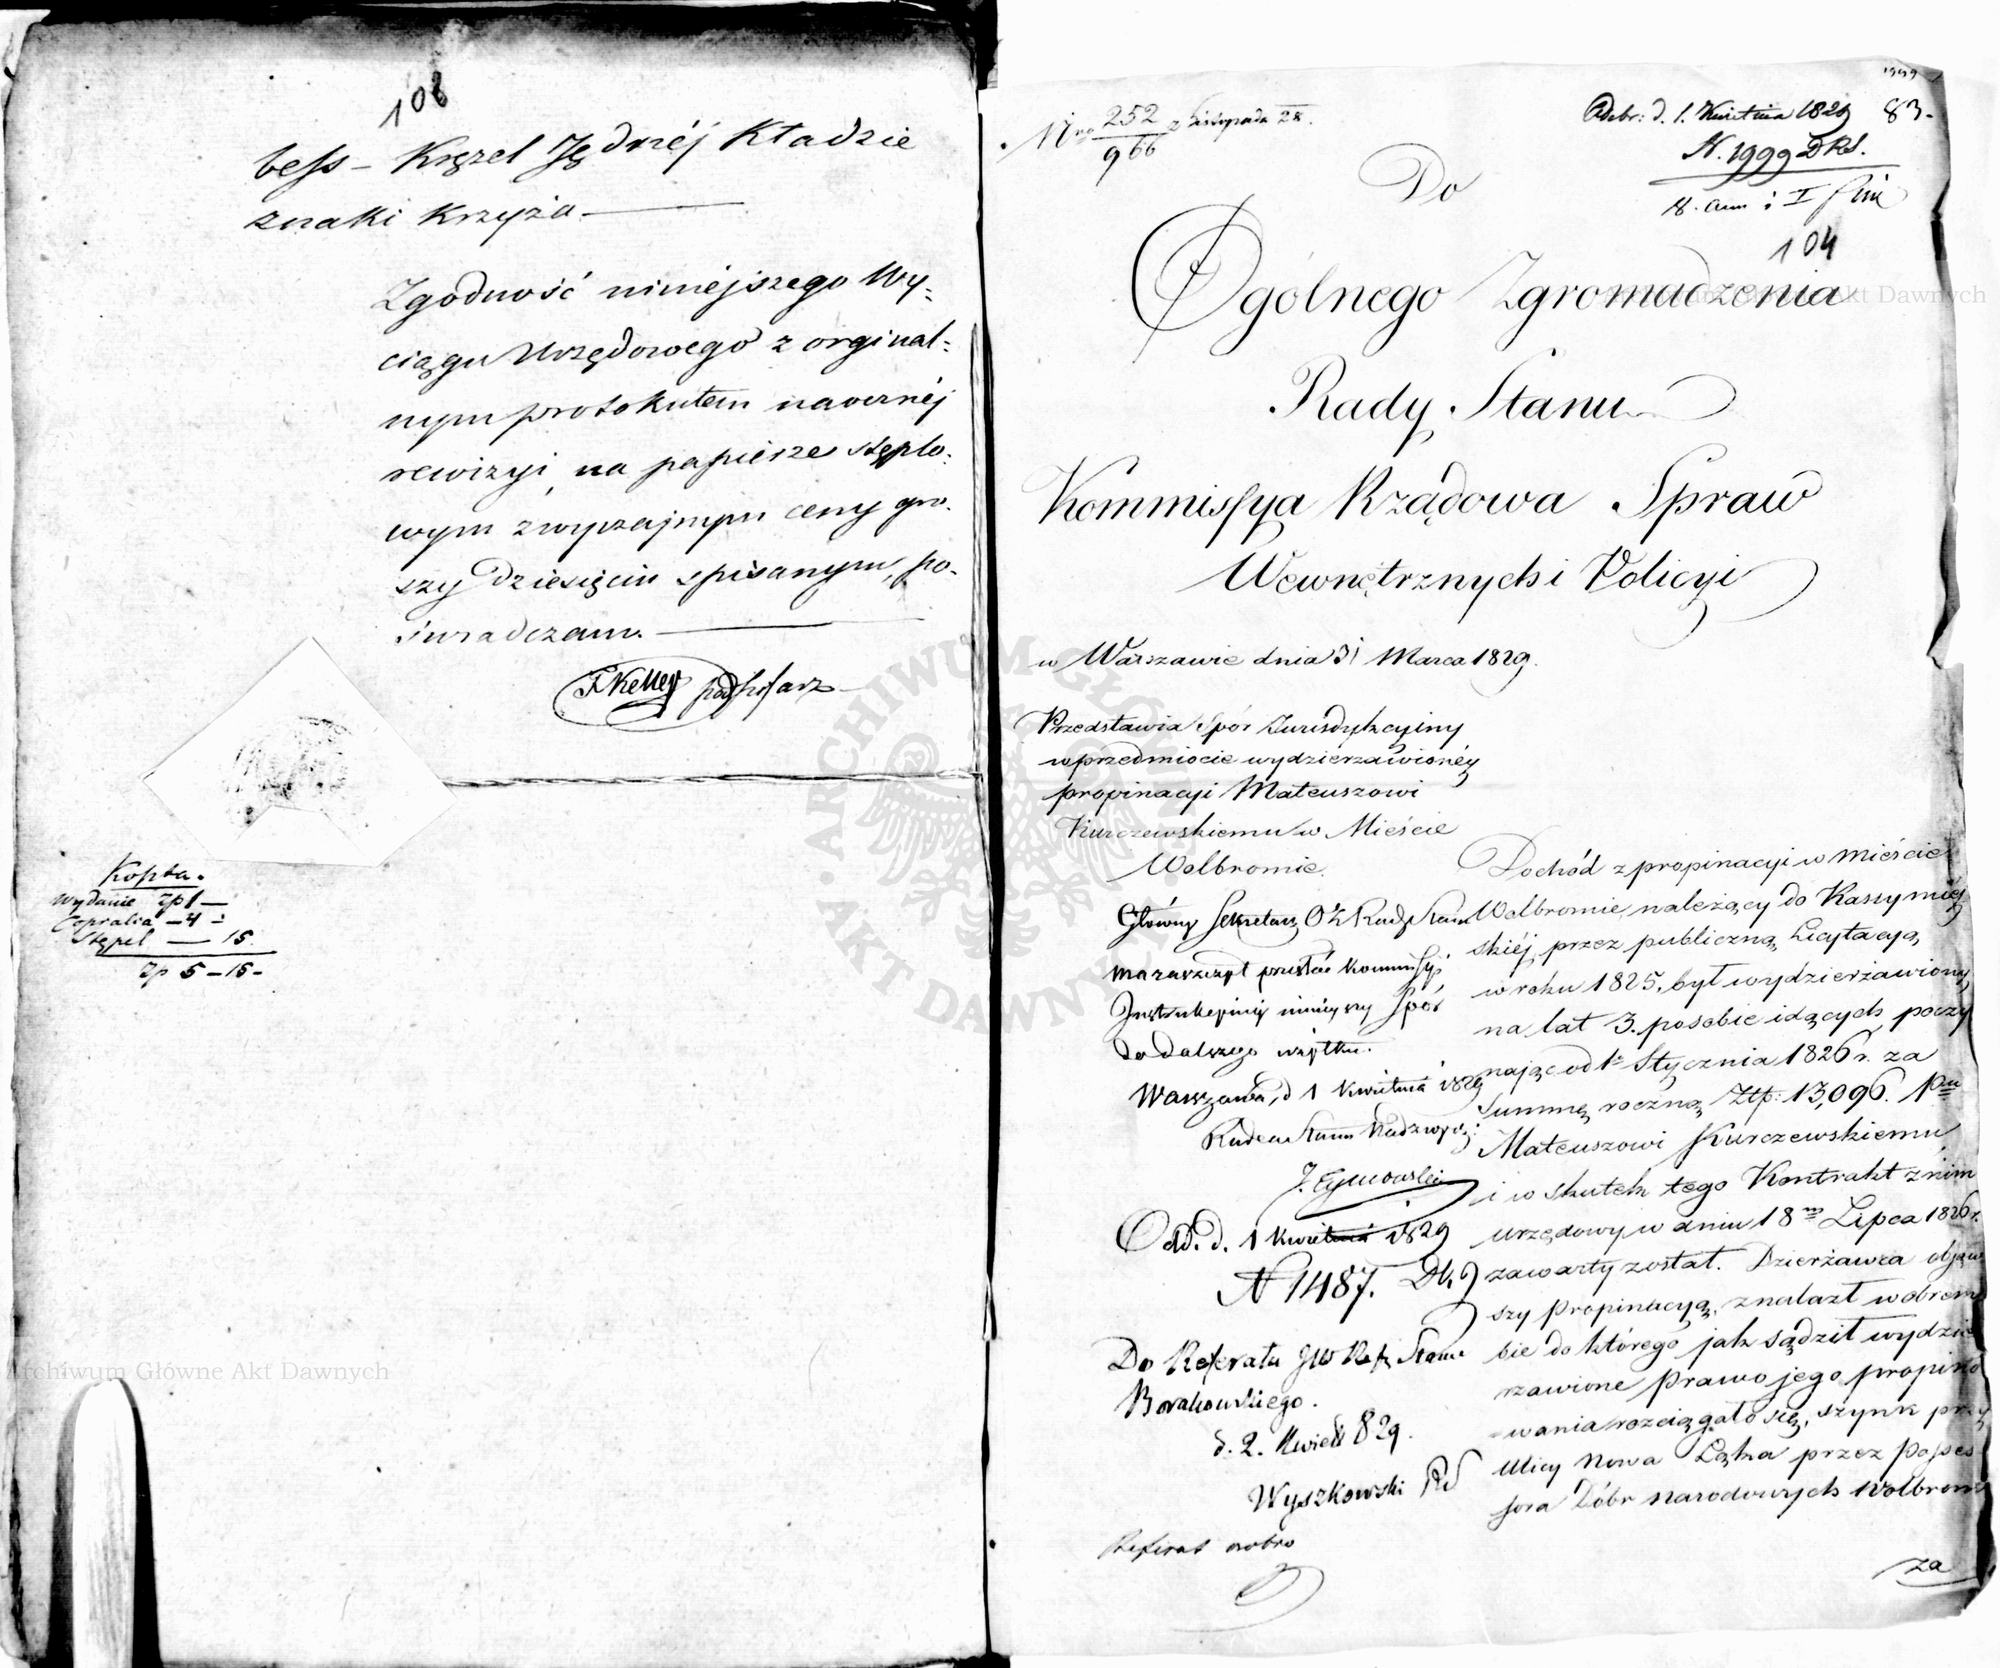 108
bess – Kręzel Jędrzéj Kładzie
znaki Krzyża.
Zgodność niniejszego Wy-
ciągu Urzędowego z orginal-
nym protokułem
rewizyi, na papierze stęplo-
wym zwyczajnym ceny gro-
szy dziesięciu spisanym, po-
świadczam.
F Keller podpisarz
Koszta.
Wydanie Zp 1 —
Copralia — 4 —
Stępel — 15.
Zp 5 — 15 —
Archiwum Główne Akt Dawnych
1999
Nro 252/966 z Listopada 28.
Odebr: d. 1. Kwietnia 1829 83.
N. 1999 DRS.
104
Do
Ogólnego Zgromadzenia
Archiwum Główne Akt Dawnych
Rady Stanu
Kommissya Rządowa Spraw
Wewnętrznych i Policyi
w Warszawie dnia 31 Marca 1829.
Przedstawia Spór Jurisdykcyiny
w przedmiocie wydzierzawionéy
propinacyi Mateuszowi
Kurczewskiemu w Mieście
Wolbromie.
Główny Sekretarz Rady Stanu
ma zaszczyt przesłać Kommissyi
Instrukcyinéy ninieyszy Spór
do dalszego użytku.
Warszawa, d 1 Kwietnia 1829
Radca Stanu Nadzwycz:
J. Tymowski
Odd. d. 1 Kwietnia 1829
N 1487.
Do Referatu JW Ref. Stanu
Borakowskiego.
d. 2. Kwiet 829.
Wyszkowski RS
Referat
Dochód z propinacyi w mieście
Wolbromie należący do Kassy miéj
skiéj, przez publiczną Licytacyą
w roku 1825. był wydzierżawiony
na lat 3. po sobie idących poczy
nając od 1o Stycznia 1826 r. za
Summę roczną Ztp: 13,096. Pnu
Mateuszowi Kurczewskiemu
i w skutek tego Kontrakt z nim
urzędowy w dniu 18m Lipca 1826 r.
zawarty został. Dzierżawca objąw
szy propinacyą, znalazł w obrem
bie do którego jak sądził wydzie
rzawione prawo jego propino
wania rozciągało się, szynk przy
Ulicy Nowa Łąka przez Posses
sora Dóbr Narodowych Wolbrom
za
ARCHIWUM GŁÓWNE AKT DAWNYCH